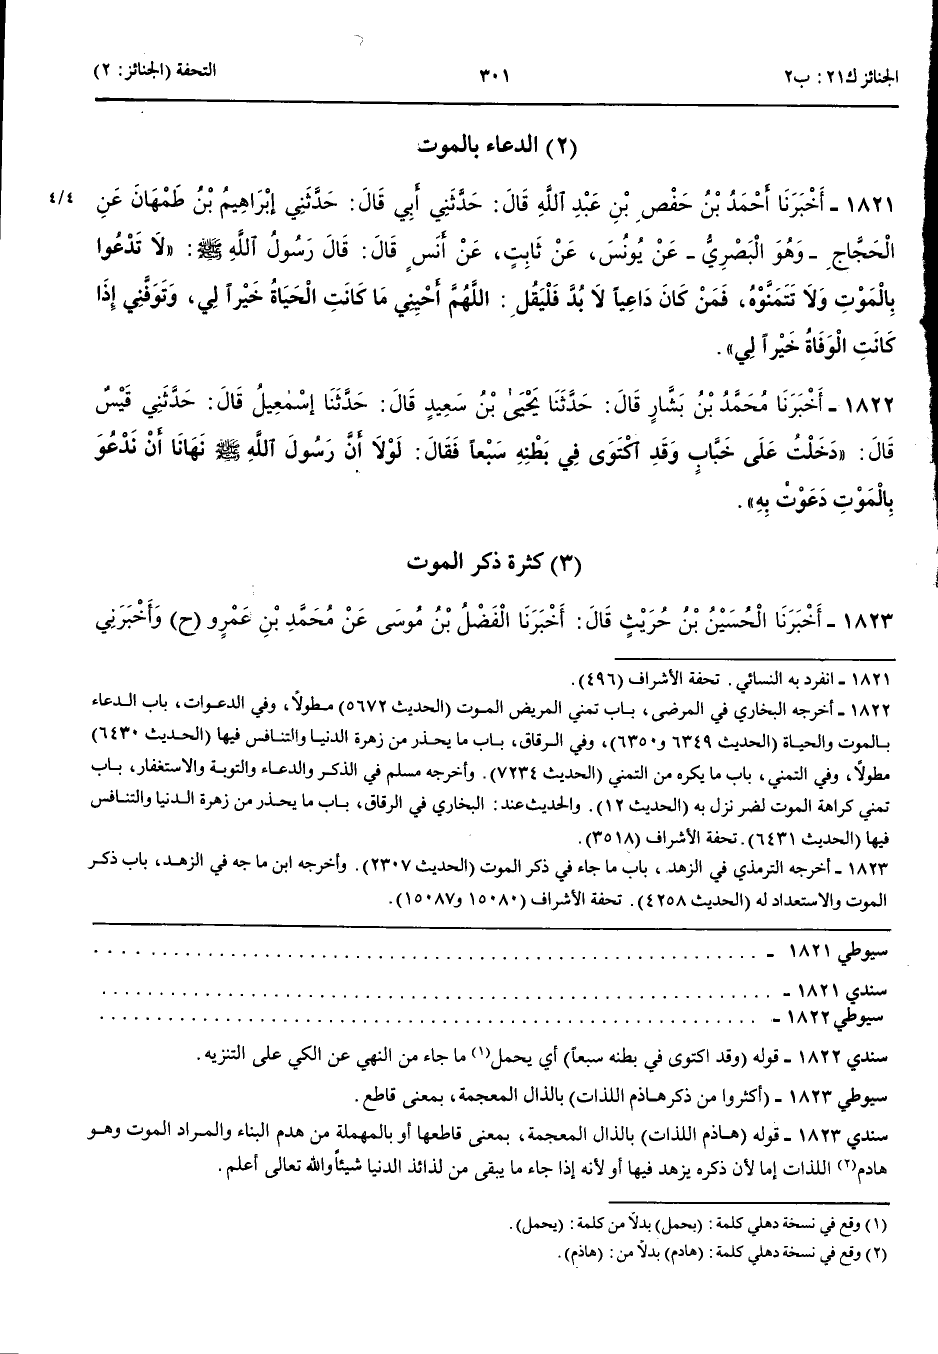 الجنائز ك٢١: ب٢
٣٠١
التحفة (الجنائز: ٢)
(٢) الدعاء بالموت
١٨٢١ ـ أَخْبَرَنَا أَحْمَدُ بْنُ حَفْصِ بْنِ عَبْدِ ٱللَّهِ قَالَ: حَدَّثَنِي أَبِي قَالَ: حَدَّثَنِي إِبْرَاهِيمُ بْنُ طَهْمَانَ عَنِ
٤/٤
الْحَجَّاجِ ـ وَهُوَ الْبَصْرِيُّ ـ عَنْ يُونُسَ، عَنْ ثَابِتٍ، عَنْ أَنَسٍ قَالَ: قَالَ رَسُولُ ٱللَّهِ ﷺ: «لَا تَدْعُوا
بِالْمَوْتِ وَلَا تَتَمَنَّوْهُ، فَمَنْ كَانَ دَاعِياً لَا بُدَّ فَلْيَقُلِ: اللَّهُمَّ أَحْيِنِي مَا كَانَتِ الْحَيَاةُ خَيْراً لِي، وَتَوَفَّنِي إِذَا
كَانَتِ الْوَفَاةُ خَيْراً لِي».
١٨٢٢ ـ أَخْبَرَنَا مُحَمَّدُ بْنُ بَشَّارٍ قَالَ: حَدَّثَنَا يَحْيَىٰ بْنُ سَعِيدٍ قَالَ: حَدَّثَنَا إِسْمٰعِيلُ قَالَ: حَدَّثَنِي قَيْسٌ
قَالَ: «دَخَلْتُ عَلَى خَبَّابٍ وَقَدِ اكْتَوَى فِي بَطْنِهِ سَبْعاً فَقَالَ: لَوْلَا أَنَّ رَسُولَ ٱللَّهِ ﷺ نَهَانَا أَنْ نَدْعُوَ
بِالْمَوْتِ دَعَوْتُ بِهِ».
(٣) كثرة ذكر الموت
١٨٢٣ ـ أَخْبَرَنَا الْحُسَيْنُ بْنُ حُرَيْثٍ قَالَ: أَخْبَرَنَا الْفَضْلُ بْنُ مُوسَى عَنْ مُحَمَّدِ بْنِ عَمْرٍو (ح) وَأَخْبَرَنِي
١٨٢١ ـ انفرد به النسائي. تحفة الأشراف (٤٩٦).
١٨٢٢ ـ أخرجه البخاري في المرضى، باب تمني المريض الموت (الحديث ٥٦٧٢) مطولاً، وفي الدعوات، باب الدعاء
بالموت والحياة (الحديث ٦٣٤٩ و٦٣٥٠)، وفي الرقاق، باب ما يحذر من زهرة الدنيا والتنافس فيها (الحديث ٦٤٣٠)
مطولاً، وفي التمني، باب ما يكره من التمني (الحديث ٧٢٣٤). وأخرجه مسلم في الذكر والدعاء والتوبة والاستغفار، باب
تمني كراهة الموت لضر نزل به (الحديث ١٢). والحديث عند: البخاري في الرقاق، باب ما يحذر من زهرة الدنيا والتنافس
فيها (الحديث ٦٤٣١). تحفة الأشراف (٣٥١٨).
١٨٢٣ ـ أخرجه الترمذي في الزهد، باب ما جاء في ذكر الموت (الحديث ٢٣٠٧). وأخرجه ابن ماجه في الزهد، باب ذكر
الموت والاستعداد له (الحديث ٤٢٥٨). تحفة الأشراف (١٥٠٨٠ و١٥٠٨٧).
سيوطي ١٨٢١ ـ ..................................................
سندي ١٨٢١ ـ ..................................................
سيوطي ١٨٢٢ ـ ..................................................
سندي ١٨٢٢ ـ قوله (وقد اكتوى في بطنه سبعاً) أي يحمل(١) ما جاء من النهي عن الكي على التنزيه.
سيوطي ١٨٢٣ ـ (أكثروا من ذكر هاذم اللذات) بالذال المعجمة، بمعنى قاطع.
سندي ١٨٢٣ ـ قوله (هاذم اللذات) بالذال المعجمة، بمعنى قاطعها أو بالمهملة من هدم البناء والمراد الموت وهو
هادم(٢) اللذات إما لأن ذكره يزهد فيها أو لأنه إذا جاء ما يبقى من لذائذ الدنيا شيئاً والله تعالى أعلم.
(١) وقع في نسخة دهلي كلمة: (بحمل) بدلاً من كلمة: (يحمل).
(٢) وقع في نسخة دهلي كلمة: (هادم) بدلاً من: (هاذم).